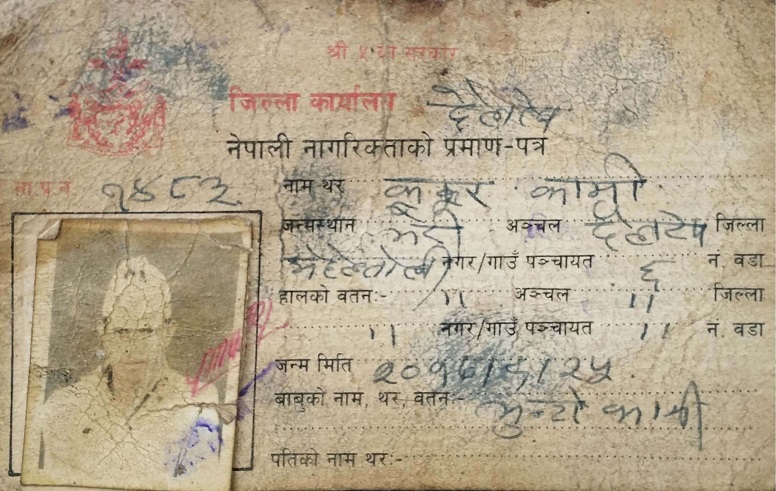 श्री ५ को सरकार
जिल्ला कार्यालय दैलेख
नेपाली नागरिकताको प्रमाण-पत्र
ना.प्र.न. १४८३
नाम थर कामी
जन्मस्थान भेरी अञ्चल दैलेख जिल्ला
नगर/गाउँ पञ्चायत ६ नं. वडा
हालको वतन:- '' अञ्चल '' जिल्ला
'' नगर/गाउँ पञ्चायत '' नं. वडा
जन्म मिति
बाबुको नाम, थर, वतन:- कामी
पतिको नाम थर:-